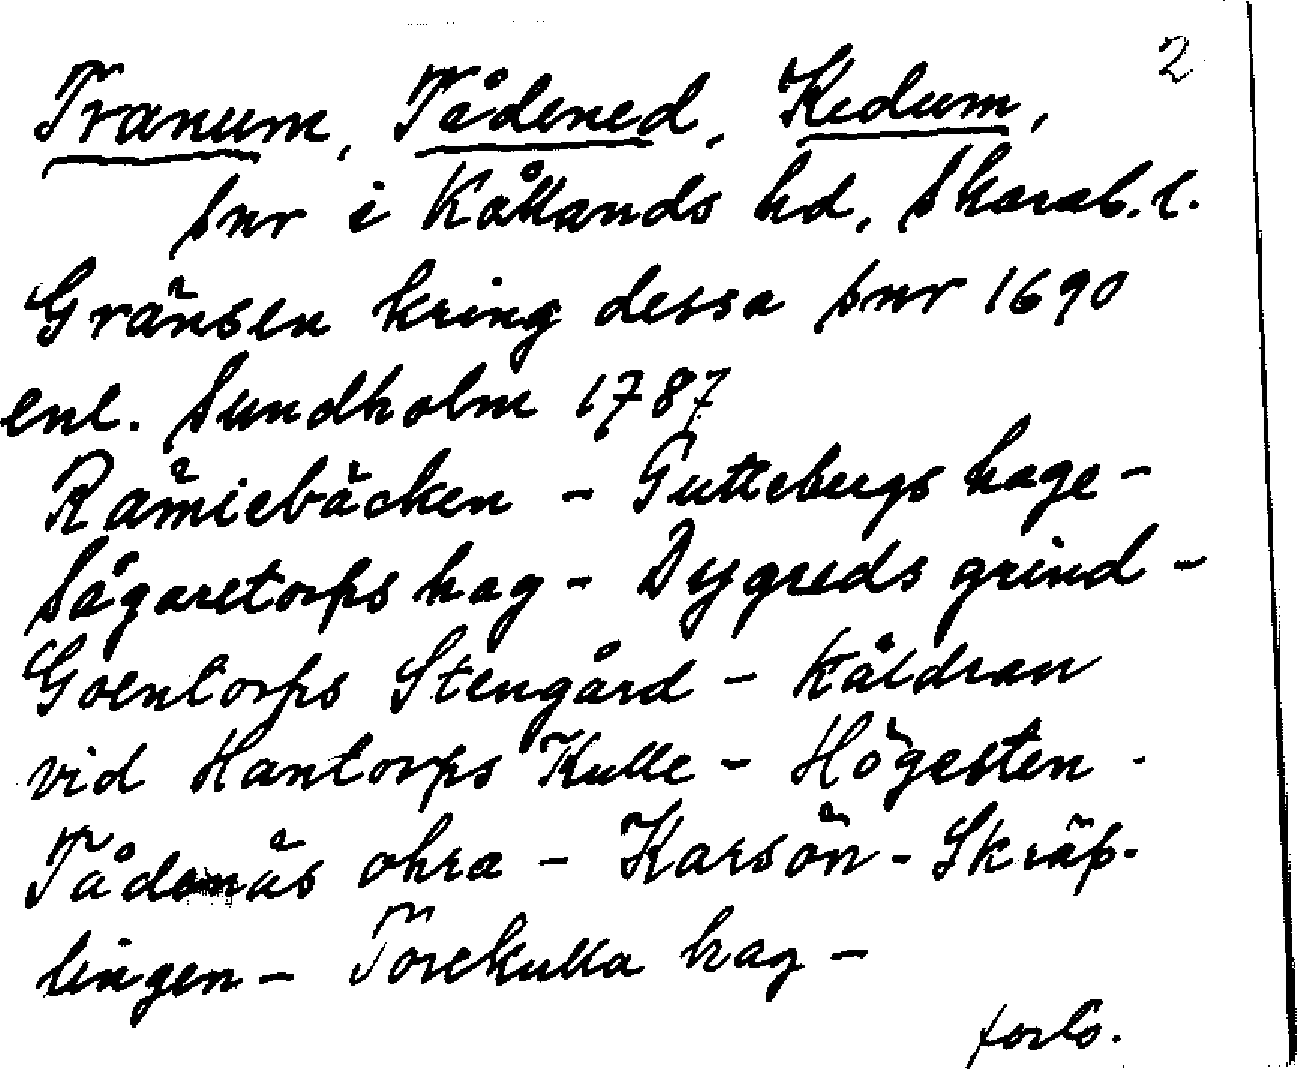 2
Tranum, Tådened, Kedum,
snr i Kållands hd, Skarab. l.
Gränsen kring dessa snr 1690
enl. Sundholm 1787
Rämiebäcken - Guttebergs hage -
Sågaretorps hag - Dygreds grind -
Goentorps Stengård - Kåldran
vid Hantorps Kulle - Högesten -
Tådenäs ohra - Karsön - Skräp-
lingen - Torekulla hag -
forts.